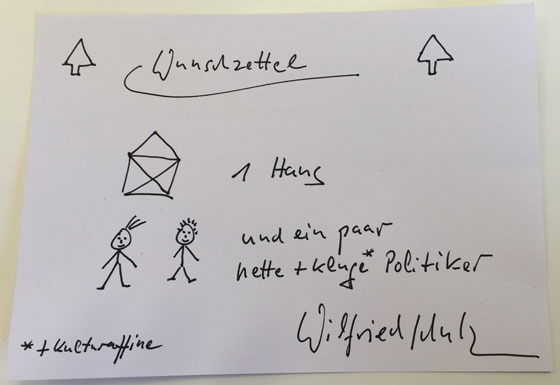 Wunschzettel
1 Haus
und ein paar
nette + kluge* Politiker
Wilfried Schulz
* + Kulturaffine